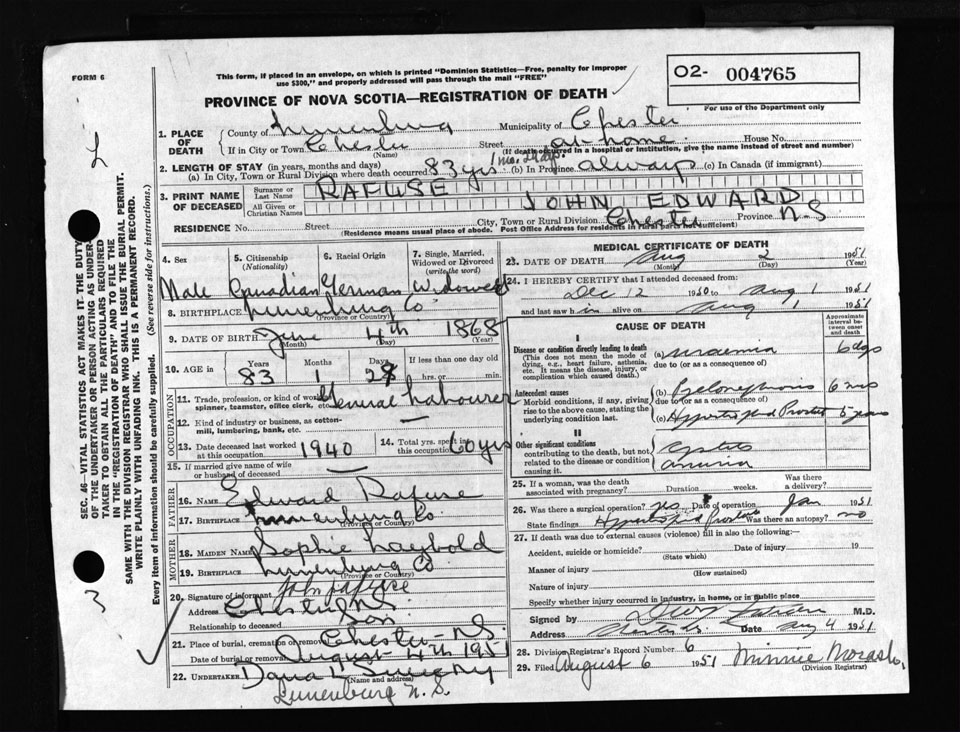 FORM 6
This form, if placed in an envelope, on which is printed "Dominion Statistics—Free, penalty for improper
use $300," and properly addressed will pass through the mail "FREE"
PROVINCE OF NOVA SCOTIA—REGISTRATION OF DEATH
02- 004765
For use of the Department only
1. PLACE OF DEATH
County of Lunenburg Municipality of Chester
If in City or Town Chester Street at home House No.
(Name) (If death occurred in a hospital or institution, give the name instead of street and number)
2. LENGTH OF STAY (in years, months and days)
(a) In City, Town or Rural Division where death occurred 83 yrs 1 mo. (b) In Province always (c) In Canada (if immigrant)
3. PRINT NAME OF DECEASED
Surname or Last Name RAFUSE
All Given or Christian Names JOHN EDWARD
RESIDENCE No. Street City, Town or Rural Division Chester Province N S
(Residence means usual place of abode. Post Office Address for residents in rural parts not sufficient)
4. Sex Male
5. Citizenship (Nationality) Canadian
6. Racial Origin German
7. Single, Married, Widowed or Divorced (write the word) Widowed
8. BIRTHPLACE Lunenburg Co
(Province or Country)
9. DATE OF BIRTH June 4th 1868
(Month) (Day) (Year)
10. AGE in Years 83 Months 1 Days If less than one day old hrs. or min.
OCCUPATION
11. Trade, profession, or kind of work as spinner, teamster, office clerk, etc. General Labourer
12. Kind of industry or business, as cotton-mill, lumbering, bank, etc. —
13. Date deceased last worked at this occupation 1940
14. Total yrs. spent in this occupation 60 yrs
15. If married give name of wife or husband of deceased
FATHER
16. NAME Edward Rafuse
17. BIRTHPLACE Lunenburg Co
(Province or Country)
MOTHER
18. MAIDEN NAME Sophie
19. BIRTHPLACE Lunenburg Co
(Province or Country)
20. Signature of informant John Rafuse
Address Chester N.S.
Relationship to deceased Son
21. Place of burial, cremation or removal Chester - N.S.
Date of burial or removal August 4th 1951
22. UNDERTAKER Dana L Sweeny
(Name and Address)
Lunenburg N. S.
MEDICAL CERTIFICATE OF DEATH
23. DATE OF DEATH Aug 2 1951
(Month) (Day) (Year)
24. I HEREBY CERTIFY that I attended deceased from:
Dec 12 1950 to Aug 1 1951
and last saw him alive on Aug 1 1951
CAUSE OF DEATH
Approximate interval between onset and death
I
Disease or condition directly leading to death (a) uraemia 6 dys
(This does not mean the mode of dying, e.g., heart failure, asthenia, etc. It means the disease, injury, or complication which caused death.)
due to (or as a consequence of)
Antecedent causes (b) 6 mos
Morbid conditions, if any, giving rise to the above cause, stating the underlying condition last.
due to (or as a consequence of)
(c) 5 years
II
Other significant conditions
contributing to the death, but not related to the disease or condition causing it.
25. If a woman, was the death associated with pregnancy? Duration weeks. Was there a delivery?
26. Was there a surgical operation? yes Date of operation Jan 1951
State findings Was there an autopsy? no
27. If death was due to external causes (violence) fill in also the following:
Accident, suicide or homicide? Date of injury 19
(State which)
Manner of injury
(How sustained)
Nature of injury
Specify whether injury occurred in industry, in home, or in public place
Signed by M.D.
Address Date Aug 4 1951
28. Division Registrar's Record Number 6
29. Filed August 6 1951 Minnie
(Division Registrar)
SEC. 46—VITAL STATISTICS ACT MAKES IT THE DUTY
OF THE UNDERTAKER OR PERSON ACTING AS UNDERTAKER TO OBTAIN ALL THE PARTICULARS REQUIRED
IN THE "REGISTRATION OF DEATH" AND TO FILE THE
SAME WITH THE DIVISION REGISTRAR WHO SHALL ISSUE THE BURIAL PERMIT.
WRITE PLAINLY WITH UNFADING INK. THIS IS A PERMANENT RECORD.
Every item of information should be carefully supplied. (See reverse side for instructions.)
3